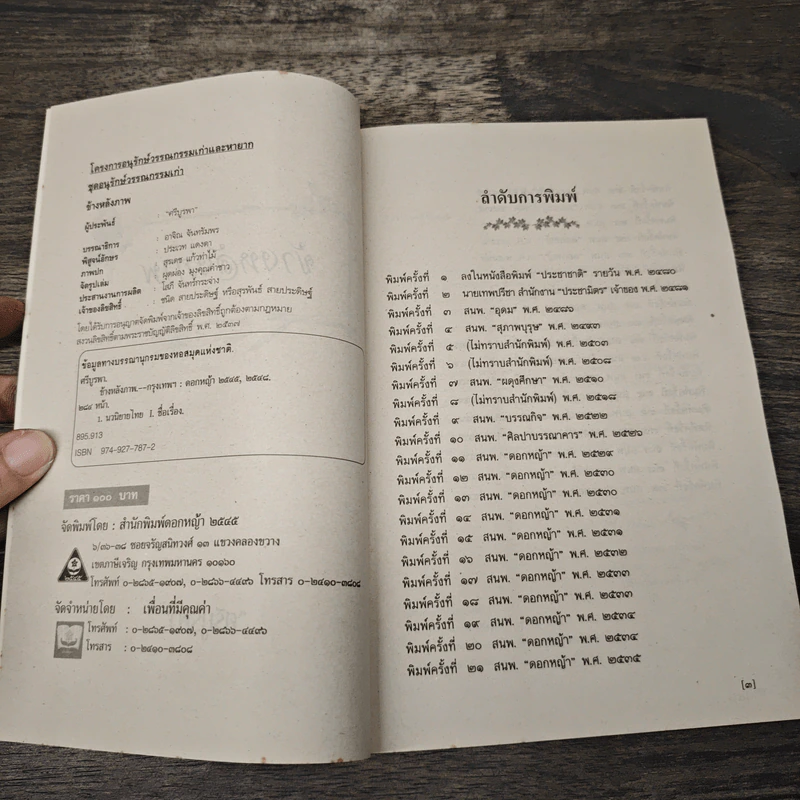 โครงการอนุรักษ์วรรณกรรมเก่าและหายาก
ชุดอนุรักษ์วรรณกรรมเก่า
ข้างหลังภาพ
ผู้ประพันธ์ : "ศรีบูรพา"
บรรณาธิการ : อาจิณ จันทรัมพร
พิสูจน์อักษร : ประเวท แดงดา
ภาพปก : สุรเดช แก้วท่าไม้
จัดรูปเล่ม : ผุดผ่อง มุงคุณคำชาว
ประสานงานการผลิต : โสภี จันทร์กระจ่าง
เจ้าของลิขสิทธิ์ : ชนิด สายประดิษฐ์ หรือสุรพันธ์ สายประดิษฐ์
โดยได้รับการอนุญาตจัดพิมพ์จากเจ้าของลิขสิทธิ์ถูกต้องตามกฎหมาย
สงวนลิขสิทธิ์ตามพระราชบัญญัติลิขสิทธิ์ พ.ศ. ๒๕๓๗
ข้อมูลทางบรรณานุกรมของหอสมุดแห่งชาติ.
ศรีบูรพา.
ข้างหลังภาพ.--กรุงเทพฯ : ดอกหญ้า ๒๕๔๕, ๒๕๔๘.
๒๘๔ หน้า.
1. นวนิยายไทย I. ชื่อเรื่อง.
895.913
ISBN 974-927-787-2
ราคา ๑๐๐ บาท
จัดพิมพ์โดย : สำนักพิมพ์ดอกหญ้า ๒๕๔๕
๖/๓๖-๓๘ ซอยจรัญสนิทวงศ์ ๑๓ แขวงคลองขวาง
เขตภาษีเจริญ กรุงเทพมหานคร ๑๐๑๖๐
โทรศัพท์ ๐-๒๘๖๕-๑๙๐๗, ๐-๒๘๖๖-๔๔๙๖ โทรสาร ๐-๒๔๑๐-๓๘๐๘
จัดจำหน่ายโดย : เพื่อนที่มีคุณค่า
โทรศัพท์ : ๐-๒๘๖๕-๑๙๐๗, ๐-๒๘๖๖-๔๔๙๖
โทรสาร : ๐-๒๔๑๐-๓๘๐๘
ลำดับการพิมพ์
พิมพ์ครั้งที่ ๑ ลงในหนังสือพิมพ์ "ประชาชาติ" รายวัน พ.ศ. ๒๔๘๐
พิมพ์ครั้งที่ ๒ นายเทพปรีชา สำนักงาน "ประชามิตร" เจ้าของ พ.ศ. ๒๔๘๑
พิมพ์ครั้งที่ ๓ สนพ. "อุดม" พ.ศ. ๒๔๘๖
พิมพ์ครั้งที่ ๔ สนพ. "สุภาพบุรุษ" พ.ศ. ๒๔๙๓
พิมพ์ครั้งที่ ๕ (ไม่ทราบสำนักพิมพ์) พ.ศ. ๒๕๐๓
พิมพ์ครั้งที่ ๖ (ไม่ทราบสำนักพิมพ์) พ.ศ. ๒๕๐๘
พิมพ์ครั้งที่ ๗ สนพ. "ผดุงศึกษา" พ.ศ. ๒๕๑๐
พิมพ์ครั้งที่ ๘ (ไม่ทราบสำนักพิมพ์) พ.ศ. ๒๕๑๘
พิมพ์ครั้งที่ ๙ สนพ. "บรรณกิจ" พ.ศ. ๒๕๒๒
พิมพ์ครั้งที่ ๑๐ สนพ. "ศิลปาบรรณาคาร" พ.ศ. ๒๕๒๖
พิมพ์ครั้งที่ ๑๑ สนพ. "ดอกหญ้า" พ.ศ. ๒๕๒๙
พิมพ์ครั้งที่ ๑๒ สนพ. "ดอกหญ้า" พ.ศ. ๒๕๓๐
พิมพ์ครั้งที่ ๑๓ สนพ. "ดอกหญ้า" พ.ศ. ๒๕๓๐
พิมพ์ครั้งที่ ๑๔ สนพ. "ดอกหญ้า" พ.ศ. ๒๕๓๑
พิมพ์ครั้งที่ ๑๕ สนพ. "ดอกหญ้า" พ.ศ. ๒๕๓๑
พิมพ์ครั้งที่ ๑๖ สนพ. "ดอกหญ้า" พ.ศ. ๒๕๓๒
พิมพ์ครั้งที่ ๑๗ สนพ. "ดอกหญ้า" พ.ศ. ๒๕๓๓
พิมพ์ครั้งที่ ๑๘ สนพ. "ดอกหญ้า" พ.ศ. ๒๕๓๓
พิมพ์ครั้งที่ ๑๙ สนพ. "ดอกหญ้า" พ.ศ. ๒๕๓๔
พิมพ์ครั้งที่ ๒๐ สนพ. "ดอกหญ้า" พ.ศ. ๒๕๓๔
พิมพ์ครั้งที่ ๒๑ สนพ. "ดอกหญ้า" พ.ศ. ๒๕๓๕
[๓]